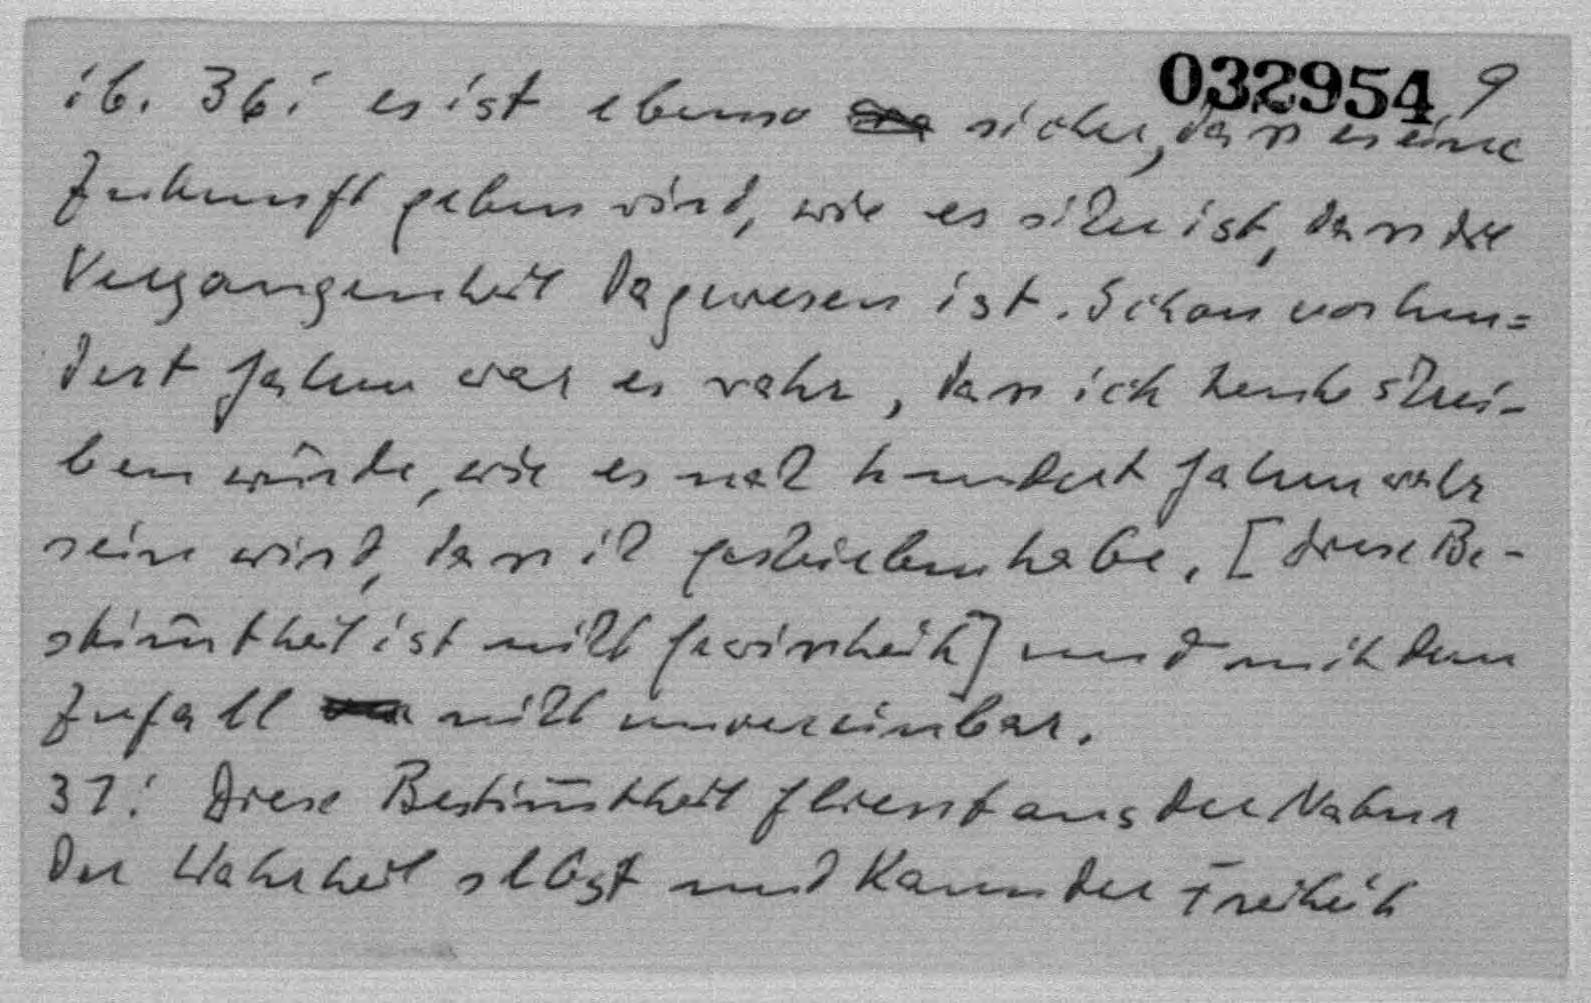 032954 9
ib. 36: es ist ebenso sicher, dass es eine
Zukunft geben wird, wie es sicher ist, dass die
Vergangenheit dagewesen ist. Schon vor hun=
dert Jahren war es wahr, dass ich heute schrei-
ben würde, wie es nach hundert Jahren wahr
sein wird, dass ich geschrieben habe. [diese Be-
stim̄theit ist nicht Gewissheit] und mit dem
Zufall nicht unvereinbar.
37: Diese Bestim̄theit fliesst aus der Natur
der Wahrheit selbst und kann der Freiheit